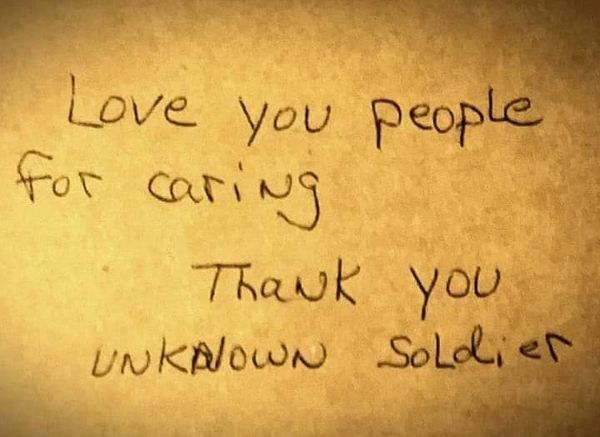 Love you people
for caring
Thank you
UNKNOWN SoLdier